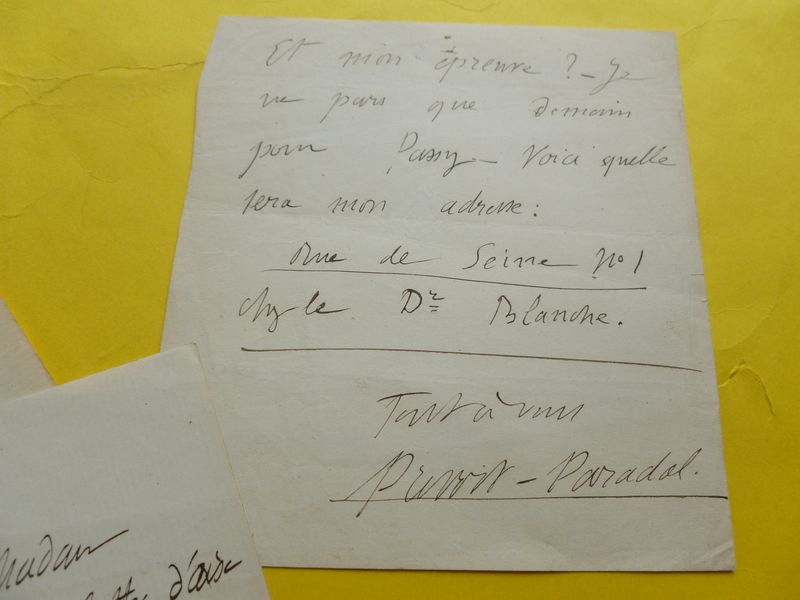 Et mon épreuve ? – Je
ne pars que demain
pour Passy – Voici quelle
sera mon adresse :
Rue de Seine n° 1
chez le Dr Blanche.
Tout à vous
Prevost-Paradol.
Madam
d'avise